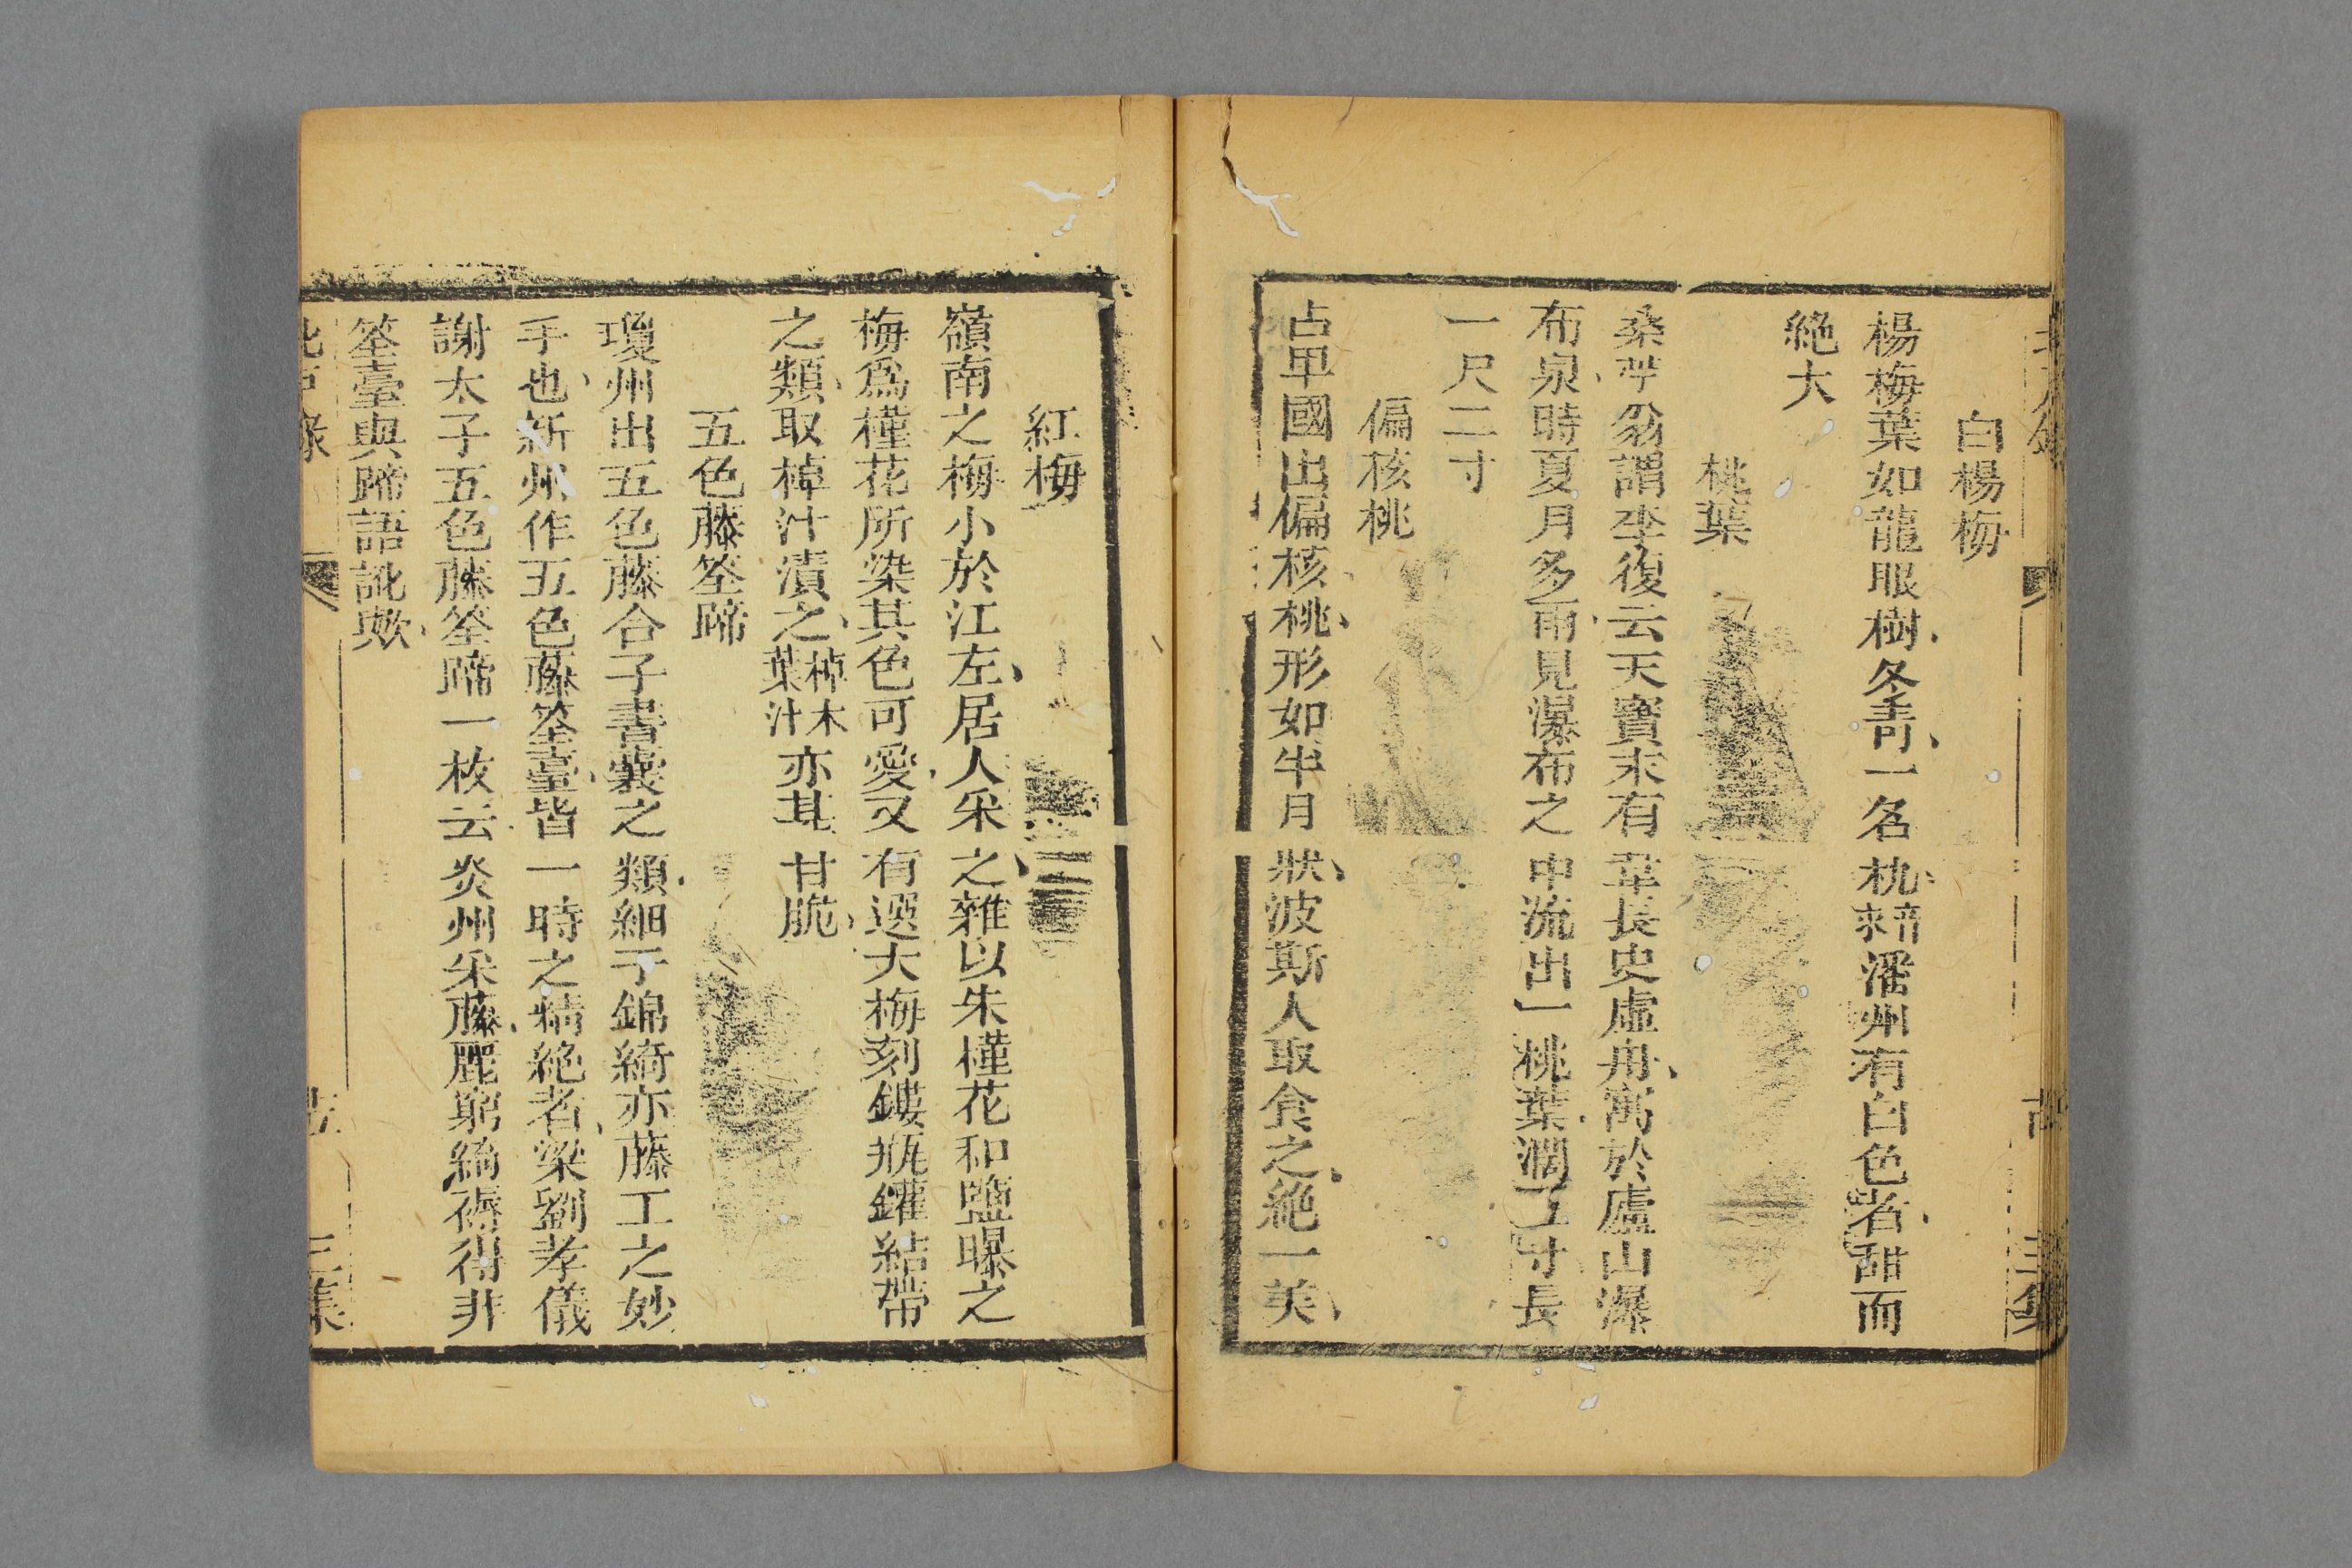 白楊梅
楊梅葉如龍眼樹冬青一名朹音求潘州有白色者甜而
絶大
桃葉
桑苧翁謂李復云天寶末有韋長史虛舟寓於廬山瀑
布泉時夏月多雨見瀑布之中流出一桃葉濶二寸長
一尺二寸
偏核桃
占卑國出偏核桃形如半月狀波斯人取食之絶一美
紅梅
嶺南之梅小於江左居人采之雜以朱槿花和鹽曝之
梅爲槿花所染其色可愛又有選大梅刻鏤瓶鑵結帶
之類取棹汁漬之棹木葉汁亦甚甘脆
五色藤筌蹄
瓊州出五色藤合子書囊之類細于錦綺亦藤工之妙
手也新州作五色藤筌臺皆一時之精絶者梁劉孝儀
謝太子五色藤筌蹄一枚云炎州采藤麗窮綺褥得非
筌臺與蹄語訛歟
北戸錄
三集